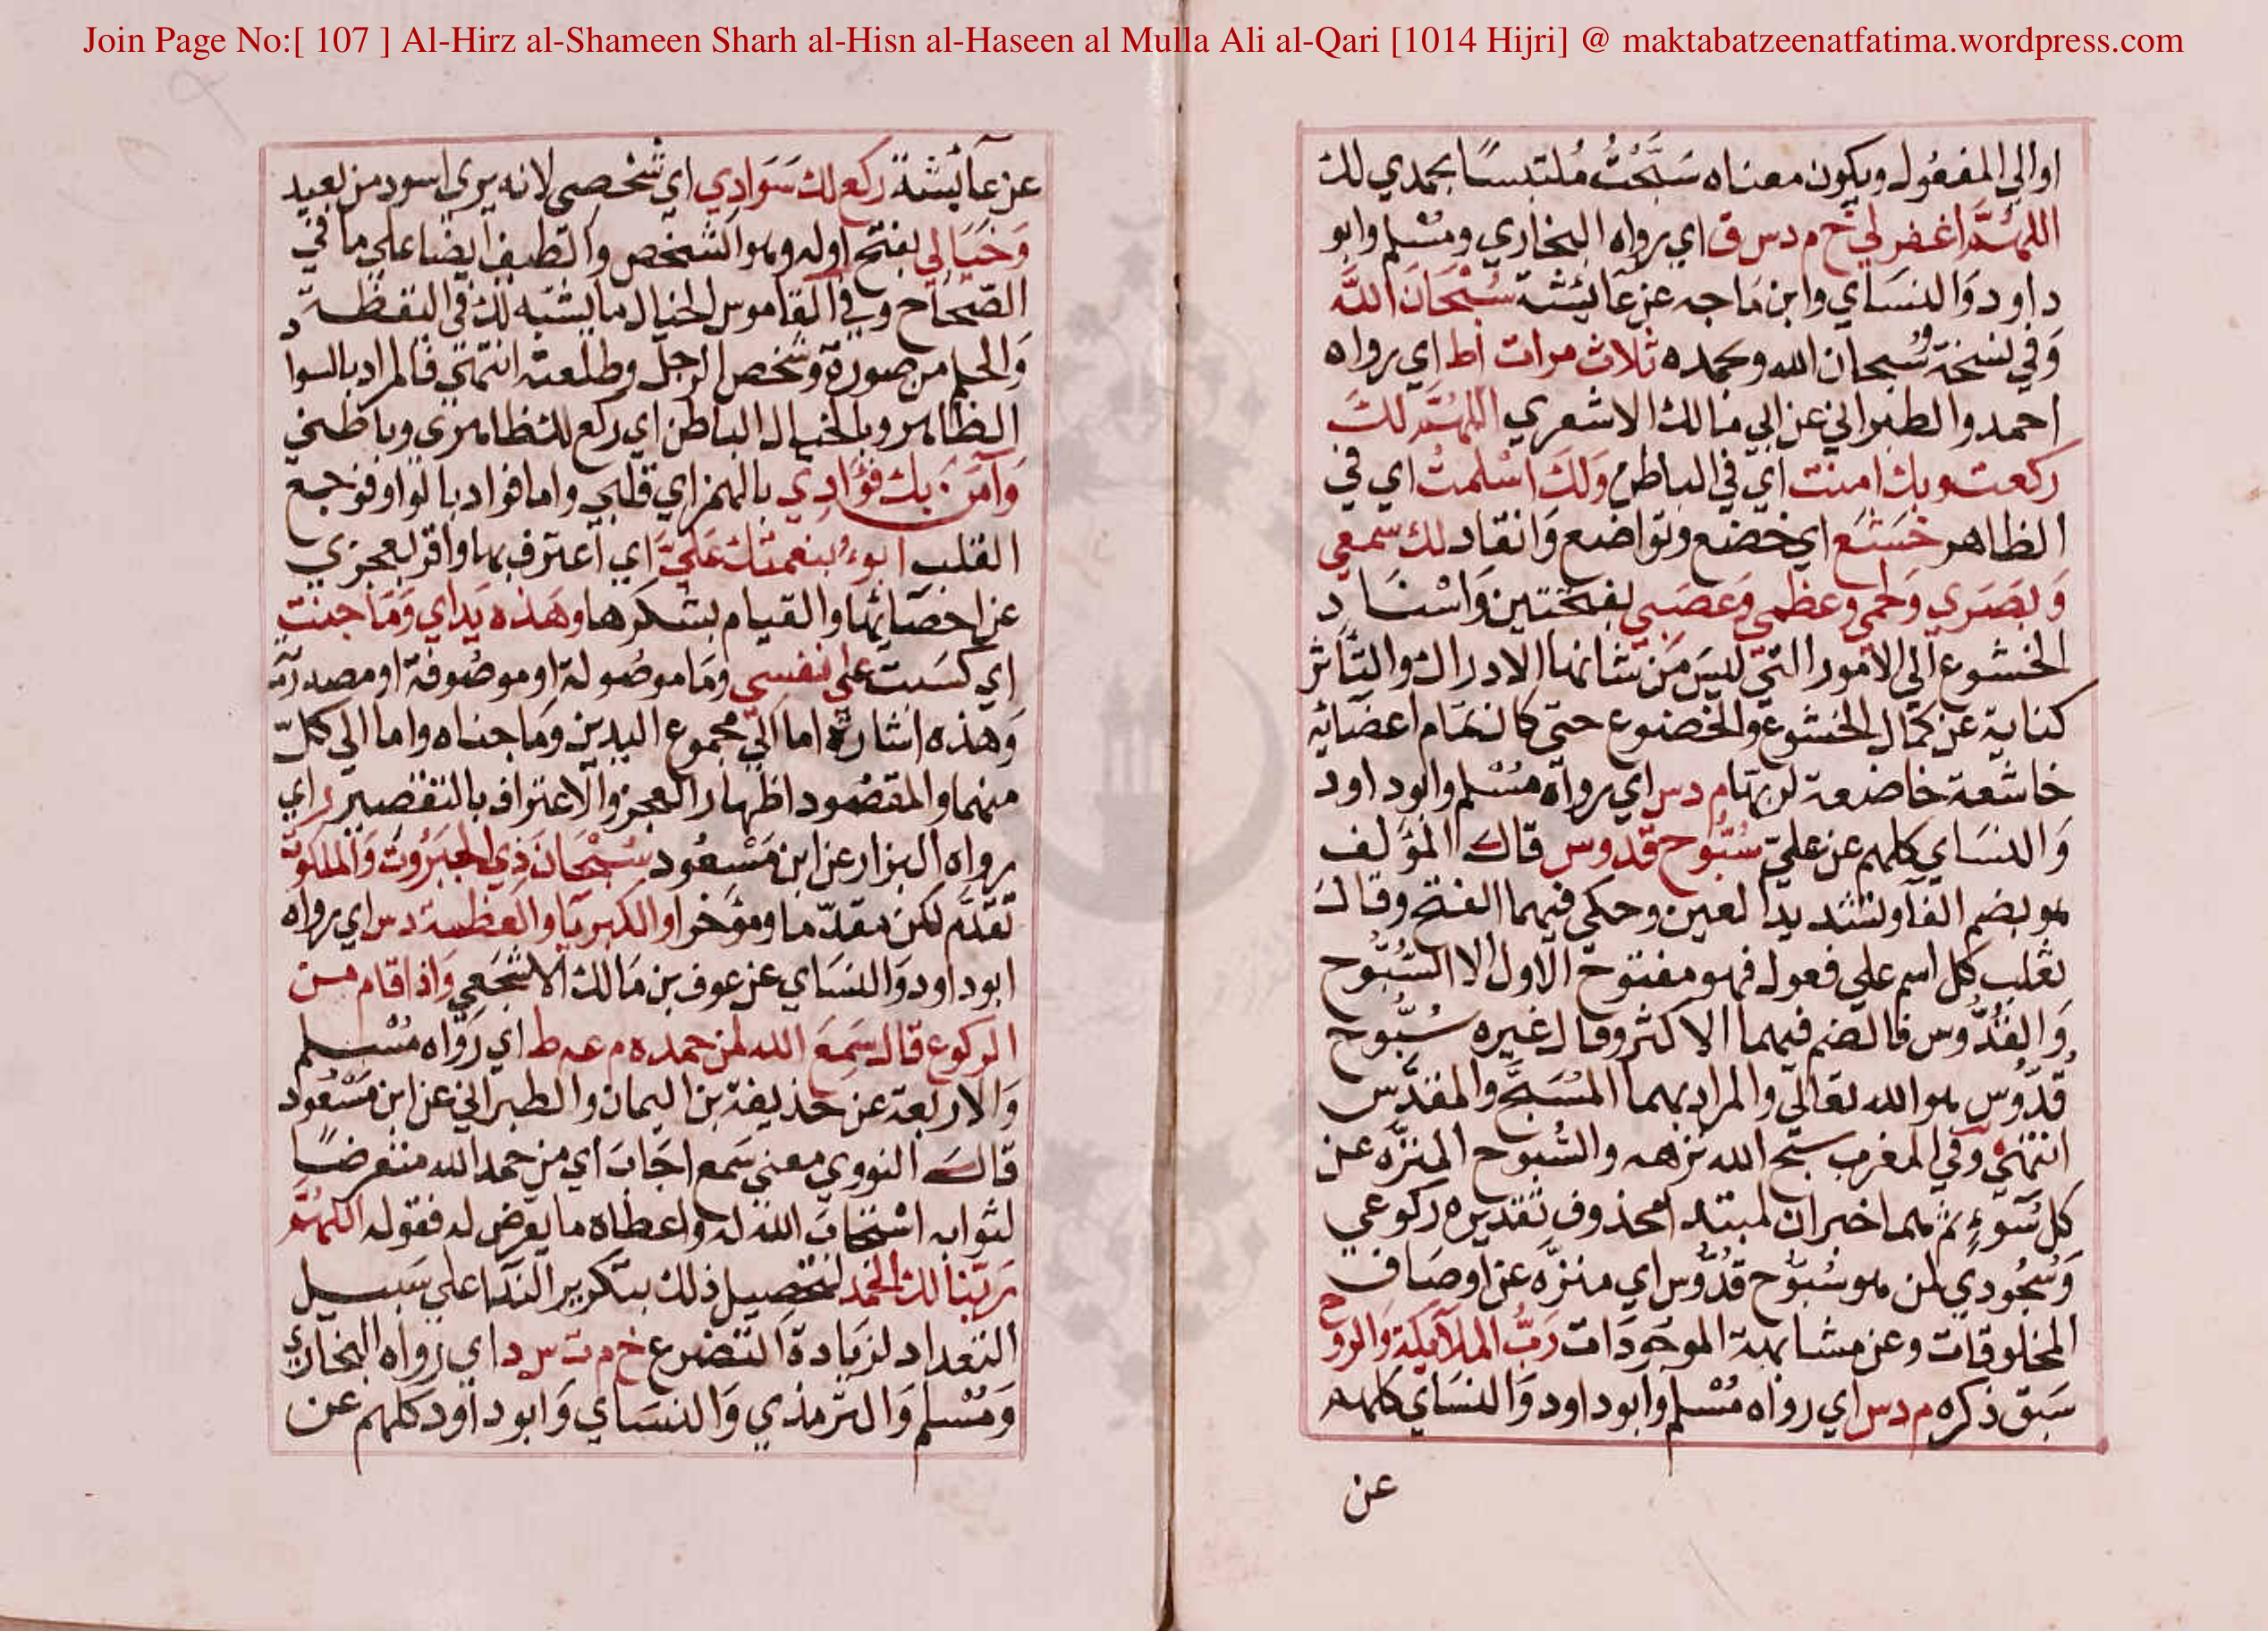 Join Page No:[ 107 ] Al-Hirz al-Shameen Sharh al-Hisn al-Haseen al Mulla Ali al-Qari [1014 Hijri] @ maktabatzeenatfatima.wordpress.com
او الي المفعول ويكون معناه سَبَّحْتُ مُلتبسًا بحمدي لك
اللهُمَّ اغفر لي خ م د س ق اي رواه البخاري ومُسْلم وابو
داود وَالنسَاي وابن مَاجه عن عَائشة سُبْحَانَ اللَّه
وَفي نسخة سُبحان الله وبحمده ثلاث مرات اط اي رواه
احمد والطبراني عن ابي مالك الاشعري اللهُمَّ لكَ
ركعت وبك امنت اي في الباطن وَلكَ اسْلمتُ اي في
الظاهر خَشَعَ اي خضع وتواضع وَانقاد لك سمعي
وَبَصَري وَلحمي وعظمي وَعَصَبي بفتحتين وَاسْنَاد
الخشوع الي الامور التي ليسَ مِن شانها الادراك والتَّأثر
كناية عن كمال الخشوع والخضوع حتي كان تمَام اعضائه
خاشعة خاضعة لربّها م د س اي رواه مُسْلم وابو داود
وَالنسَاي كلهم عن عليّ سُبُّوح قدوس قال المؤلف
هو بضم الفآ وتشديد العين وحكي فيهما الفتح وقال
ثعلب كل اسم علي فعول فهو مفتوح الاول الا السُّبُّوح
وَالقُدُّوس فالضم فيهما الاكثر وقال غيره سُبُّوح
قُدُّوس هو الله تعالي والمراد بهما المُسَبَّح والمقدَّس
انتهي وفي المغرب سبّح الله نزهه والسُّبوح المنزَّه عن
كل سُوءٍ ثم هما خبران لمبتدا محذوف تقديره ركوعي
وَسُجُودي لمن هو سُبُّوح قدُّوس اي منزَّه عن اوصَاف
المخلوقات وعن مشابهة الموجَودَات رَبُّ الملآئِكة وَالروح
سَبق ذكره م د س اي رواه مُسْلم وابو داود وَالنسَاي كلهم
عن
عن عآئشة ركع لك سَوَادِي اي شخصي لانه يري اسود من بعيد
وَخَيَالي بفتح اوله وهو الشخص والطيف ايضا علي ما في
الصّحَاح وفي القاموس الخيال ما يشبه لك في اليقظة
وَالحلم من صورة وشخص الرجل وطلعته انتهي فالمراد بالسواد
الظاهر وبالخيال الباطن اي ركع لك ظاهري وباطني
وَآمَنَ بك فؤادِي بالهمز اي قلبي واما فواد بالواو فوجع
القلب ابوءُ بنعمتك عَليَّ اي اعترف بها واقر بعجزي
عن احصَائها والقيام بشكرها وهَذه يَداي وَمَا جنيت
اي كسَبت علي نفسي ومَا موصُولة او موصُوفة او مصدرية
وَهذه اشارة اما الي مجموع اليدين ومَا جناه واما الي كلّ
منهما والمقصُود اظهار العجز والاعتراف بالتقصير ر اي
رواه البزار عن ابن مَسْعُود سُبْحَانَ ذِي الجَبَرُوت وَالملكوت
تقَدَّم لكن مقدّما ومؤخرا والكبريآ والعظمة د س اي رواه
ابو داود وَالنسَاي عن عوف بن مَالك الاشجَعي وَاذا قام من
الركوع قال سَمِعَ الله لمن حمده م عه ط اي رَوَاه مُسْلم
وَالاربعة عن حذيفة بن اليمان والطبراني عن ابن مَسْعُود
قالَ النووي معني سَمع اجَابَ اي من حمد الله متعرضًا
لثوابه اسْتجَابَ الله له واعطاه ما يعرض له فقوله اللهُمَّ
رَبَّنا لك الحَمْد لتحصيل ذلك بتكرير الندَآ علي سَبيل
التعداد لزيَادة التضرع خ م ت س د اي رَوَاه البخاري
وَمُسْلم وَالترمذي وَالنسَاي وَابو داود كلهم عن